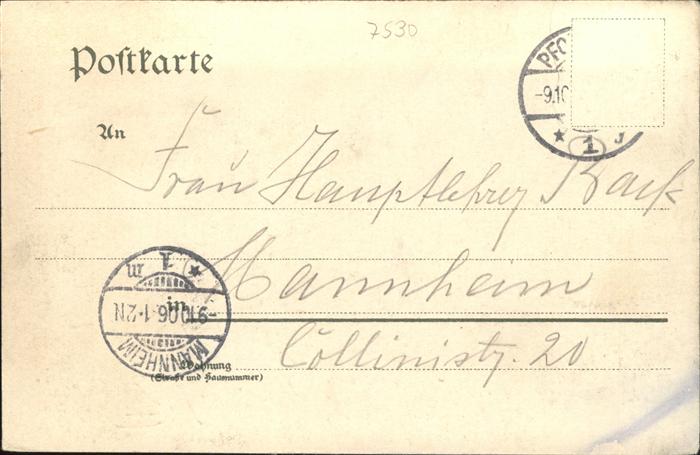 7530
Postkarte
PFO
-9.10
* 1 J
An
Frau Hauptlehrer Back
* 1 m
Mannheim
in
-9.10.06.1-2N
MANNHEIM
Collinistr. 20
Wohnung
(Straße und Hausnummer)